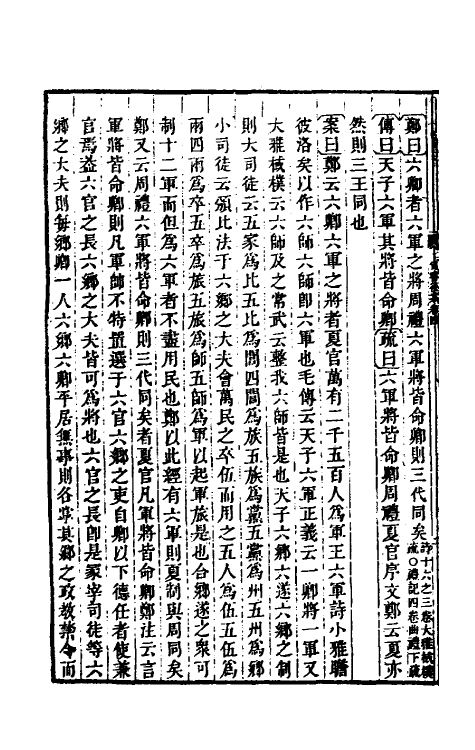 鄭曰六卿者六軍之將周禮六軍將皆命卿則三代同矣詩十六之三卷大雅棫樸疏○禮記四卷曲禮下疏
傳曰天子六軍其將皆命卿疏曰六軍將皆命卿周禮夏官序文鄭云夏亦
然則三王同也
案曰鄭云六卿六軍之將者夏官萬有二千五百人爲軍王六軍詩小雅瞻
彼洛矣以作六師六師卽六軍也毛傳云天子六軍正義云一卿將一軍又
大雅棫樸云六師及之常武云整我六師皆是也天子六鄉六遂六鄉之制
則大司徒云五家爲比五比爲閭四閭爲族五族爲黨五黨爲州五州爲鄉
小司徒云頒比法于六鄉之大夫會萬民之卒伍而用之五人爲伍五伍爲
兩四兩爲卒五卒爲旅五旅爲師五師爲軍以起軍旅是也合鄉遂之衆可
制十二軍而但爲六軍者不盡用民也鄭以此經有六軍則夏制與周同矣
鄭又云周禮六軍將皆命卿則三代同矣者夏官凡軍將皆命卿鄭注云言
軍將皆命卿則凡軍帥不特置選于六官六鄉之吏自卿以下德任者使兼
官焉蓋六官之長六鄉之大夫皆可爲將也六官之長卽是冢宰司徒等六
鄉之大夫則每鄉卿一人六鄉六卿平居無事則各掌其鄉之政教禁令而